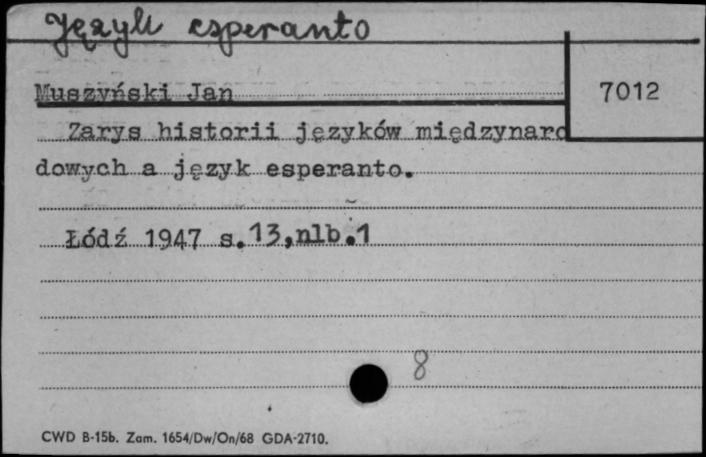 Język esperanto
7012
Muszyński Jan
Zarys historii języków międzynaro
dowych a język esperanto.
Łódź 1947 s.13,nlb.1
8
CWD B-15b. Zam. 1654/Dw/On/68 GDA-2710.